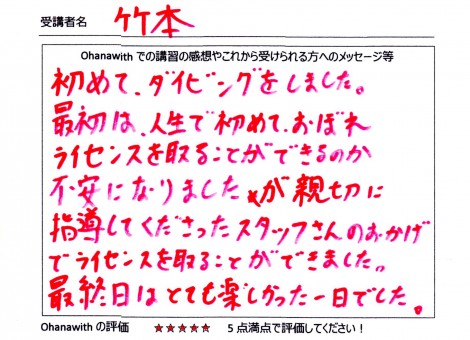 受講者名 竹本
Ohanawith での講習の感想やこれから受けられる方へのメッセージ等
初めて、ダイビングをしました。
最初は、人生で初めて、おぼれ
ライセンスを取ることができるのか
不安になりましたが親切に
指導してくださったスタッフさんのおかげ
でライセンスを取ることができました。
最終日はとても楽しかった一日でした。
Ohanawith の評価 ★★★★★ 5 点満点で評価してください！